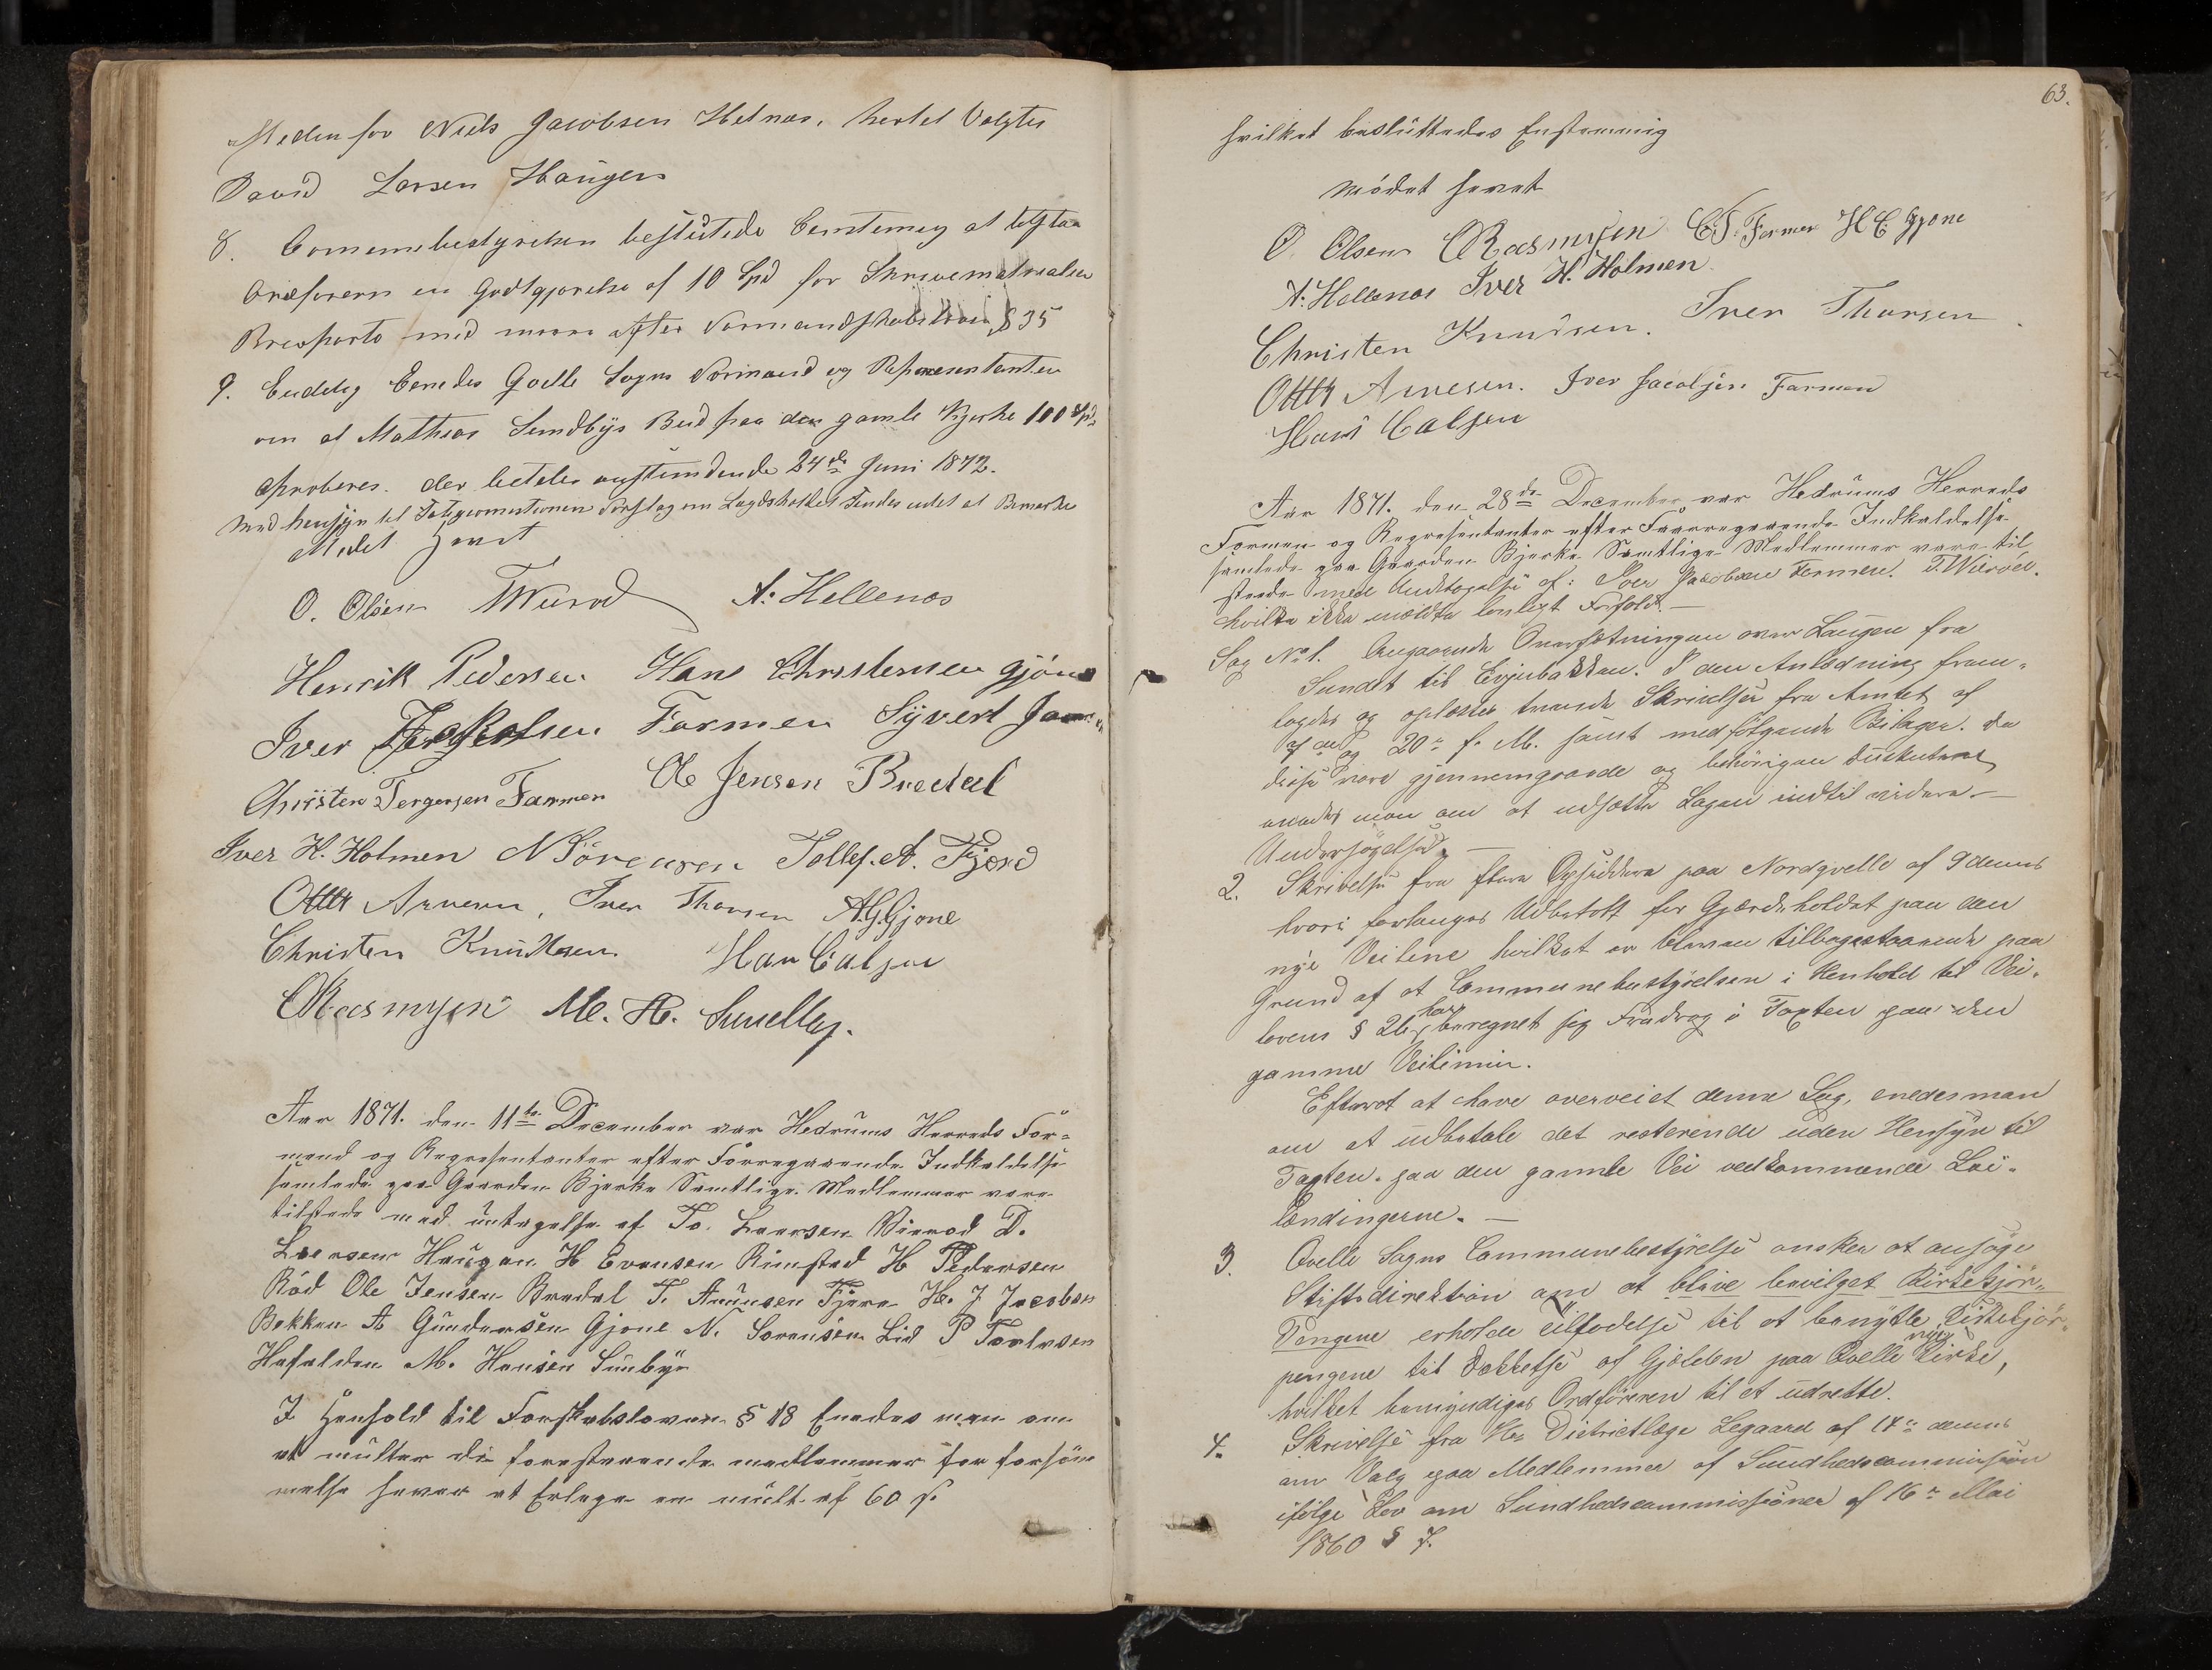 Steden for Niels Jacobsen Helnæs. hertil Valgtes
David Larsen Haugen
8. Communebestyrelsen besluttede Eenstemig at tilstaa
Ordføreren en Godtgjørelse af 10 Spd for Skrivematrialier
Brevporto med mere efter Formandskabsloven § 35
9. Endelig Enedes Qvelle Sogns Formænd og Repræsentanter
om at Mathias Sundbys Bud paa den gamle Kjerke 100 Spd
aproberes. der betales 24de Juni 1872.
Med hensyn til Forslag om Lægdsholdet Findes intet at Bemerke
Mødet hævet
O. Olsen TWierød A. Hellenæs
Henrik Pedersen Hans Christensen Gjøne
Iver Jacobsen Farmen Syvert
Christen Tergersen Farmen Ole Jensen Bredal
Iver H. Holmen N Sørensen Tollef. A. Fjære
Otter Arnesen, Iver Thorsen AGGjone
Christen Knudtsen Han Calsen
CRasmusen M. H. Sundby.
Aar 1871. den 11te December var Hedrums Herreds For-
mænd og Representanter efter Forregaaende Indkaldelse
samlede paa Gaarden Bjerke Samtlige Medlemmer vare
tilstede med untagelse af To. Laersen Vierød D.
Laersen Haugen H Evensen Rimstad H Pedersen
Rød Ole Jensen Bredal T. Amunsen Fjære H. J Jacobsen
Bekken A Gundersen Gjone N. Sorensen Lid P Torlesen
Hafalden M. Hansen Sunbye
I Henhold til Forskabsloven § 18 Enedes man om
at multer de forestaaende medlemmer for forsøm
melse haver at Erlegge en mult af 60 s.
63.
hvilket besluttedes Enstemmig
Mödet hevet
O. Olsen CRasmusen C.T. Farmen H C Gjone
A. Hellenæs Iver H. Holmen
Christen Knudsen. Iver Thorsen
Otter Arnesen. Iver Jacobsen Farmen
Hans Calsen
Aar 1871. den 28de December var Hedrums Herreds
Formen og Representanter efter Foorregaaende Indkaldelse
samlede paa Gaarden Bjerke Samtlige Medlemmer vare til
stede med Undtagelse af: Iver Jacobsen Farmen. T. Wierød.
hvilke ikke meldte lovligt Forfald. —
Sag No 1. Angaaende Oversætningen over Laugen fra
Sundet til Evjubakken. I den Anledning frem-
lagdes og oplæstes tvende Skrivelser fra Amtet af
7de og 20de f. M. samt medfølgende Bilager. Da
disse vare gjennemgaaede og behörigen duskuteret
enedes man om at udsætte Sagen indtil videre —
Undersøgelse. —
2. Skrivelse fra flere Opsiddere paa Nordqvelle af 9 dennes
hvori forlanges Udbetalt for Gjærdeholdet paa den
nye Veilinie hvilket er bleven tilbagestaaende paa
Grund af at Communebestyrelsen i Henhold til Vei-
lovens § 26, har beregnet sig Fradrag i Taxten paa den
gamme Veilinie.
Efterat at have overveiet denne Sag, enedes man
om at udbetale det resterende uden Hensyn til
Taxten paa den gamle Vei vedkommende Lei-
lændingerne. —
3. Qvelle Sogns Communebestyrelse ønsker at ansøge
Stiftsdirektion om at blive bevilget Kirkekjör-
Pengene erholde tilladelse til at benytte Kirkekjør-
pengene til Dækkelse af Gjælden paa Qvelle nye Kirke,
hvilket bemyndiges Ordføreren til et udrette.
4. Skrivelse fra Hr. Districtlæge Legaard af 14de dennes
om Valg paa Medlemmer af Sundhedscommission
ifølge Lov om Sundhedscommissioner af 16de Mai
1860 § 7.